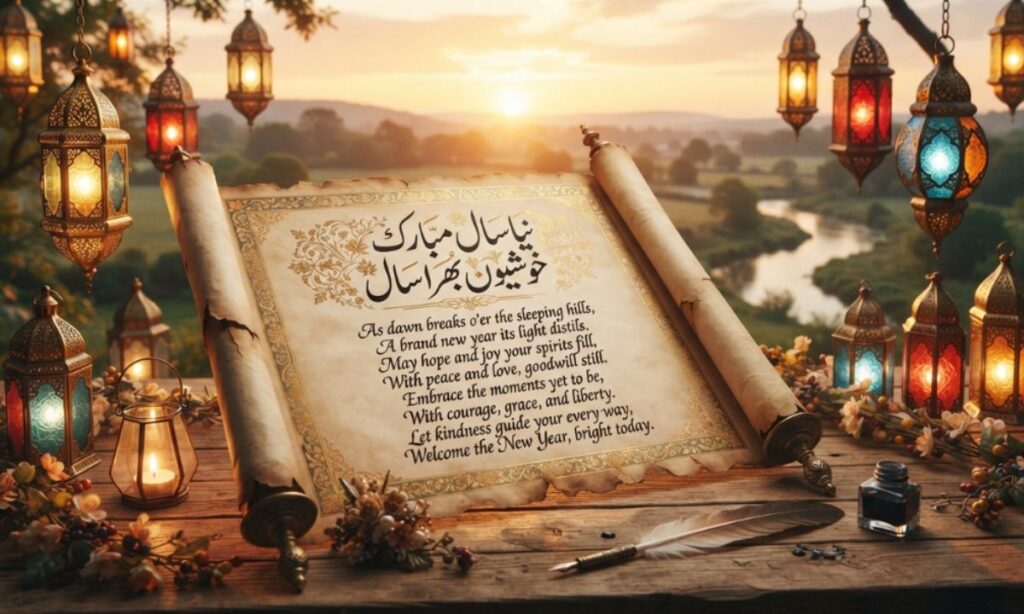 نیا سال مبارک
خوشیوں بھرا سال
As dawn breaks o'er the sleeping hills,
A brand new year its light distils.
May hope and joy your spirits fill,
With peace and love, goodwill still.
Embrace the moments yet to be,
With courage, grace, and liberty.
Let kindness guide your every way,
Welcome the New Year, bright today.